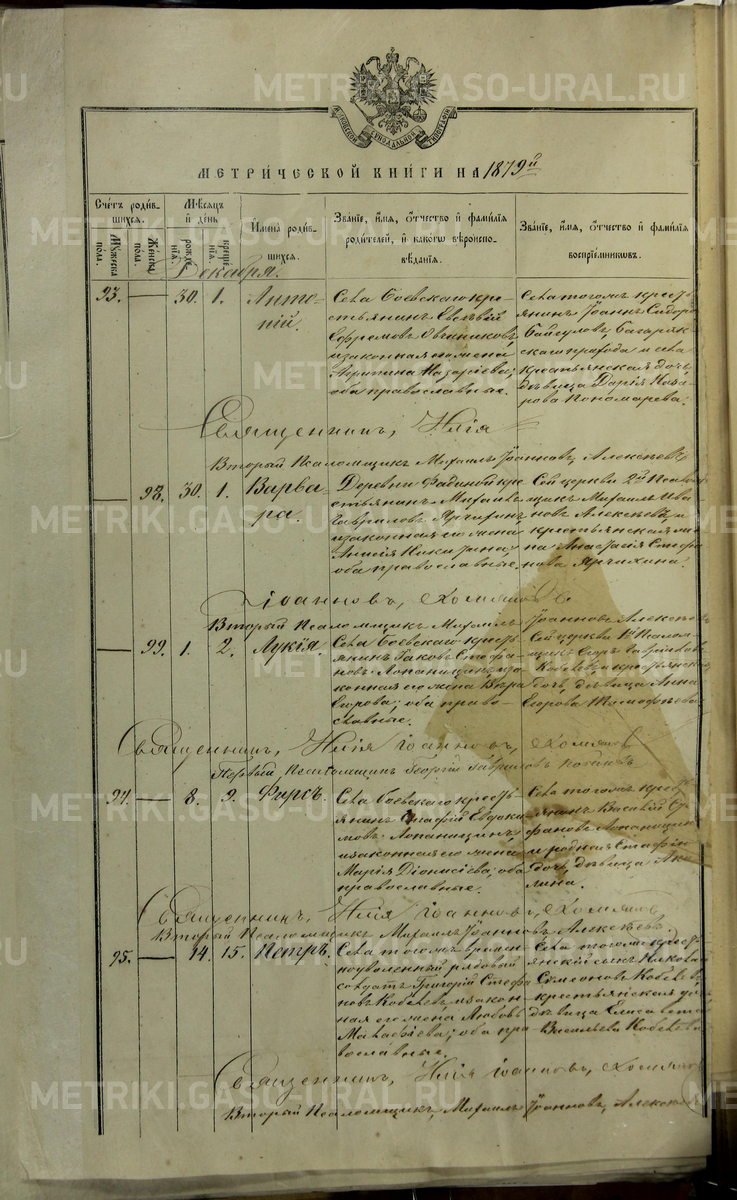 МОСКОВСКОЙ СѴНОДАЛЬНОЙ ТИПОГРАФІИ
МЕТРИ́ЧЕСКОЙ КНИ́ГИ НА 1879й
Сче́тъ роди́в-
шихся.
Му́жеска
по́ла.
Же́нска
по́ла.
Мѣ́сяцъ
и҆ де́нь
рожде́-
нїѧ.
креще́-
нїѧ.
И҆мена̀ роди́в-
шихся.
Зва́нїе, и҆́мѧ, ѻ҆́тчество и҆ фами́лїѧ
роди́телей, и҆ како́гѡ вѣроиспо-
вѣ́данїѧ.
Зва́нїе, и҆́мѧ, ѻ҆́тчество и҆ фами́лїѧ
воспрїе́мниковъ.
Декабря.
93. — 30. 1. Анто-
ній.
Села Боевскаго кре-
стьянинъ
Ефремовъ Овчинниковъ,
и законная его жена
Агрипина Назаріева;
оба православные.
Села тогожъ кресть-
янинъ Іоаннъ Сидоровъ
и села
крестьянская дочь,
дѣвица Дарія Наза-
рова Пономарева.
Священникъ, Илія
Второй Псаломщикъ Михаилъ Іоанновъ, Алексѣевъ
— 98. 30. 1. Варва-
ра.
Деревни кре-
стьянинъ
Гавриловъ
и законная его жена
Анисія Никитина;
оба православные.
Сей церкви 2й Псалом-
щикъ Михаилъ Ива-
новъ Алексѣевъ и
крестьянская же-
на Анастасія Стефа-
нова
Іоанновъ, Хомяковъ.
Второй Псаломщикъ Михаилъ Іоанновъ Алексѣевъ
— 99. 1. 2. Лукія.
Села Боевскаго кресть-
янинъ Іаковъ Стефа-
новъ Лопаницинъ, и за-
конная его жена Вѣра
Егорова; оба право-
славные.
Сей церкви 1й Псалом-
щикъ Егоръ Гавриловъ
и крестьянская
дочь, дѣвица Анна
Егорова
Священникъ, Илія Іоанновъ, Хомяковъ
Первый Псаломщикъ Георгій Гавриловъ
94. — 8. 9. Фирсъ.
Села Боевскаго кресть-
янинъ Евдоки-
мовъ Лопаницинъ,
и законная его жена
Марія Діонисіева; оба
православные.
Села тогожъ кресть-
янинъ Василій Сте-
фановъ Лопаницинъ
и родная
дочь, дѣвица Аку-
лина.
Священникъ, Илія Іоанновъ, Хомяковъ
Второй Псаломщикъ Михаилъ Іоанновъ Алексѣевъ.
95. — 14. 15. Петръ.
Села тогожъ времен-
ноуволенный рядовой
солдатъ Григорій Стефа-
новъ Кобелевъ, и закон-
ная его жена Любовь
оба пра-
вославные.
Села тогожъ кресть-
янскій сынъ Николай
Симеоновъ Кобелевъ,
крестьянская дочь,
дѣвица Елисавета
Васильева Кобелева
Священникъ, Илія Іоанновъ, Хомяковъ
Второй Псаломщикъ, Михаилъ Іоанновъ, Алексѣевъ
METRIKI.GASO-URAL.RU